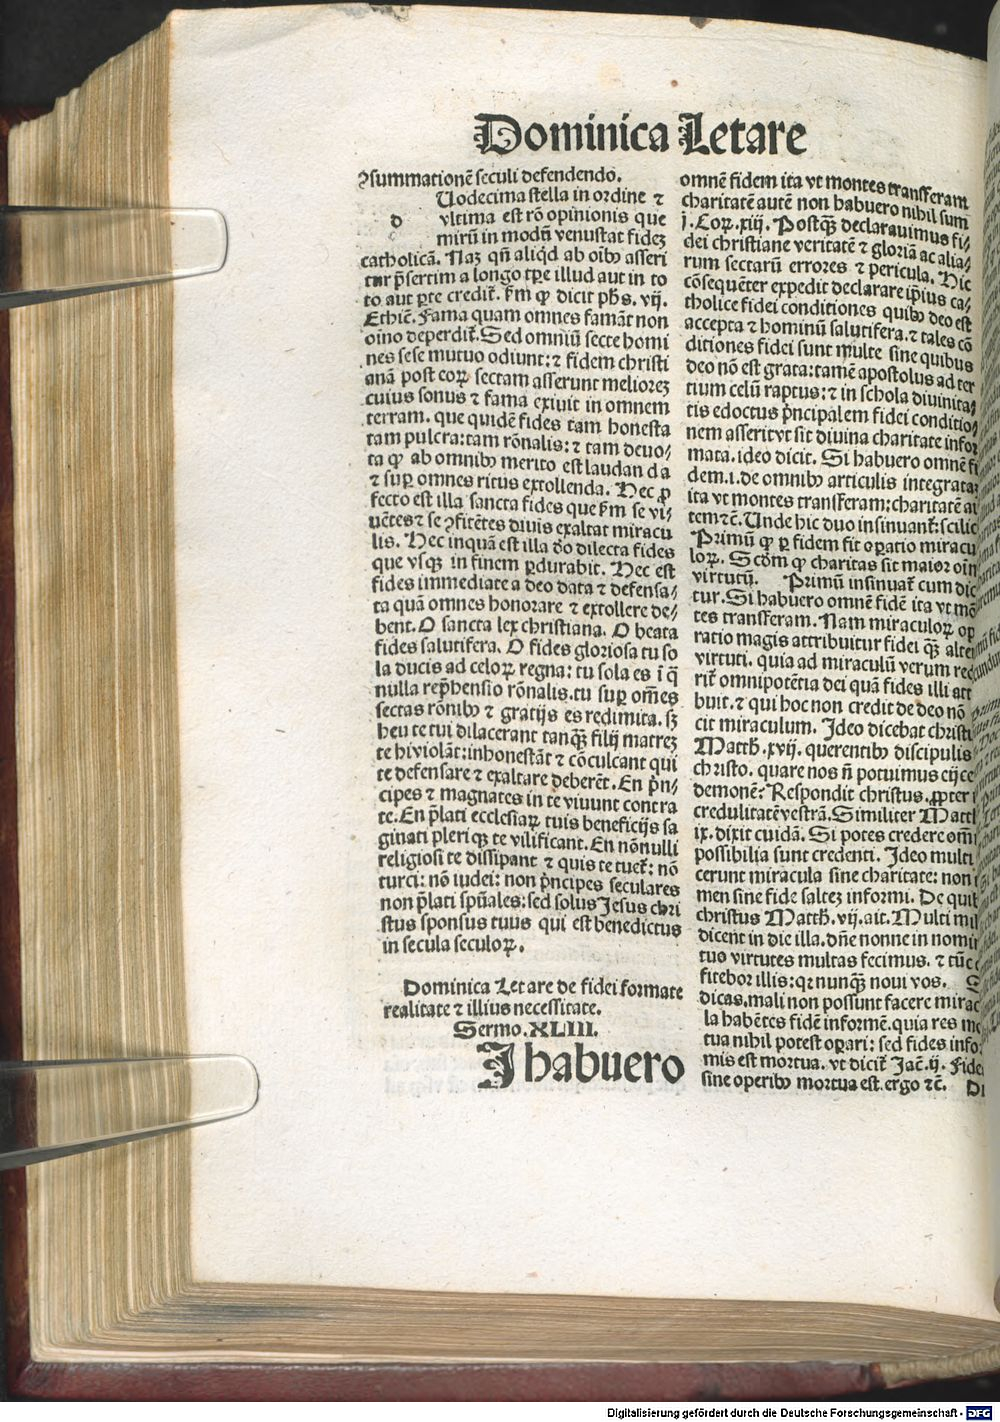 Dominica Letare
ꝯsummationē seculi defendendo.
d Uodecima stella in ordine ⁊
vltima est rō opinionis que
mirū in modū venustat fidez
catholicā. Naz qñ aliqd ab oibꝰ asseri
tur p̄sertim a longo tꝑe illud aut in to
to aut ꝑte credit᷑. ẜm ꝙ dicit phs. vij.
Ethic̄. Fama quam omnes famāt non
oino deperdit᷑. Sed omniū secte homi
nes sese mutuo odiunt: ⁊ fidem christi
anā post eoꝝ sectam asserunt meliorez
cuius sonus ⁊ fama exiuit in omnem
terram. que quidē fides tam honesta
tam pulcra: tam rōnalis: ⁊ tam deuo⸗
ta ꝙ ab omnibꝰ merito est laudanda
⁊ suꝑ omnes ritus extollenda. Hec ꝓ
fecto est illa sancta fides que ẜm se vi⸗
uētes ⁊ se ꝯfitētes diuis exaltat miracu
lis. Hec inquā est illa deo dilecta fides
que vsqꝫ in finem ꝑdurabit. Hec est
fides immediate a deo data ⁊ defensa⸗
ta quā omnes honorare ⁊ extollere de⸗
bent. O sancta lex christiana. O beata
fides salutifera. O fides gloriosa tu so
la ducis ad celoꝝ regna: tu sola es ī q̄
nulla rep̄hensio rōnalis. tu suꝑ om̄es
sectas rōnibꝰ ⁊ gratijs es redimita. sꝫ
heu te tui dilacerant tanqꝫ̄ filij matrez
te hi violāt: inhonestāt ⁊ cōculcant qui
te defensare ⁊ exaltare deberēt. En p̄n⸗
cipes ⁊ magnates in te viuunt contra
te. En p̄lati ecclesiaꝝ tuis beneficijs sa
ginati pleriqꝫ te vilificant. En nōnulli
religiosi te dissipant ⁊ quis te tuet᷑: nō
turci: nō iudei: non p̄ncipes seculares
non p̄lati spūales: sed solus Jesus chri
stus sponsus tuus qui est benedictus
in secula seculoꝝ.
Dominica Letare de fidei formate
realitate ⁊ illius necessitate.
Sermo. XLIII.
I habuero
omnē fidem ita vt montes transferam
charitatē autē non habuero nihil sum
j. Coꝝ. xiij. Postqꝫ̄ declarauimus fi⸗
dei christiane veritatē ⁊ gloriā ac alia⸗
rum sectarū errores ⁊ pericula. Hic
cōsequēter expedit declarare ip̄ius ca⸗
tholice fidei conditiones quibꝰ deo est
accepta ⁊ hominū salutifera. ⁊ tales cō
ditiones fidei sunt multe sine quibus
deo nō est grata: tamē apostolus ad ter
tium celū raptus: ⁊ in schola diuinita⸗
tis edoctus p̄ncipalem fidei conditio⸗
nem asserit vt sit diuina charitate infor
mata. ideo dicit. Si habuero omnē fi
dem .i. de omnibꝰ articulis integrataz
ita vt montes transferam: charitatē au
tem ⁊c̄. Unde hic duo insinuant᷑: scilic
Primū ꝙ ꝑ fidem fit oꝑatio miracu
loꝝ. Scdm ꝙ charitas sit maior oim
virtutū. Primū insinuat᷑ cum dic
tur. Si habuero omnē fidē ita vt mō
tes transferam. Nam miraculoꝝ oꝑ
ratio magis attribuitur fidei qꝫ̄ alter
virtuti. quia ad miraculū verum req
rit᷑ omnipotētia dei quā fides illi att
buit. ⁊ qui hoc non credit de deo nō
cit miraculum. Ideo dicebat christ
Matth̄. xvij. querentibꝰ discipulis
christo. quare nos n̄ potuimus eijce
demonē? Respondit christus. ꝓpter i
credulitatē vestrā. Similiter Matth
ix. dixit cuidā. Si potes credere om̄i
possibilia sunt credenti. Ideo multi
cerunt miracula sine charitate: non t
men sine fide saltez informi. De quib
christus Matth̄. vij. ait. Multi mih
dicent in die illa. dn̄e nonne in nomin
tuo virtutes multas fecimus. ⁊ tūc c
fitebor illis: qꝛ nunqꝫ̄ noui vos. S
dicas. mali non possunt facere mirac
la habētes fidē informē. quia res mo
tua nihil potest oꝑari: sed fides info
mis est mortua. vt dicit᷑ Jac̄. ij. Fide
sine operibꝰ mortua est. ergo ⁊c̄. Di
Digitalisierung gefördert durch die Deutsche Forschungsgemeinschaft - DFG